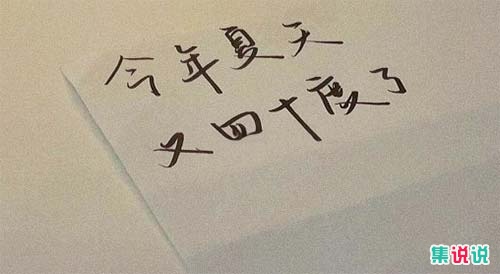 今年夏天
又四十度了
集说说